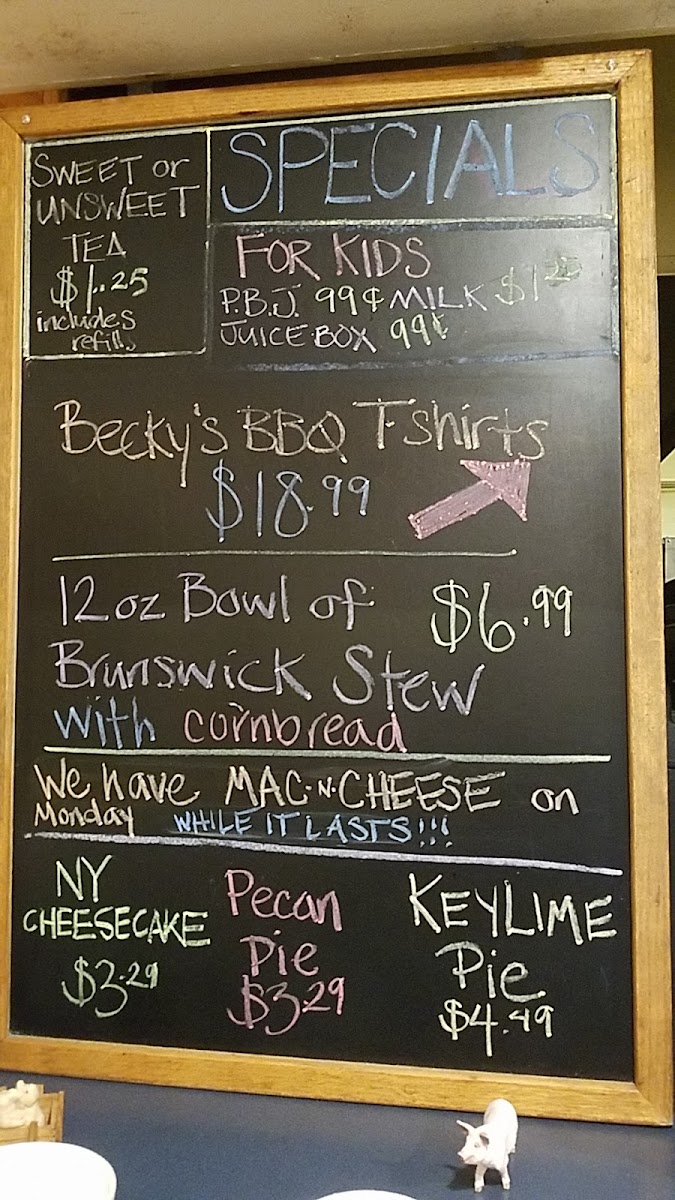 SWEET or
UNSWEET
TEA
$1.25
includes
refills
SPECIALS
FOR KIDS
P.B.J. 99¢ MILK $1.25
JUICE BOX 99¢
Becky's BBQ T-shirts
$18.99
12oz Bowl of $6.99
Brunswick Stew
with cornbread
We have MAC-N-CHEESE on
Monday WHILE IT LASTS!!!
NY
CHEESECAKE
$3.29
Pecan
Pie
$3.29
KEYLIME
Pie
$4.49